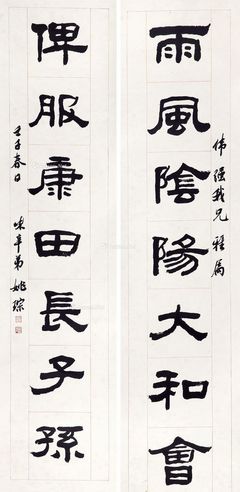 雨風陰陽大和會
俾服康田長子孫
伟强我兄雅属
壬子春日
弟姚琮